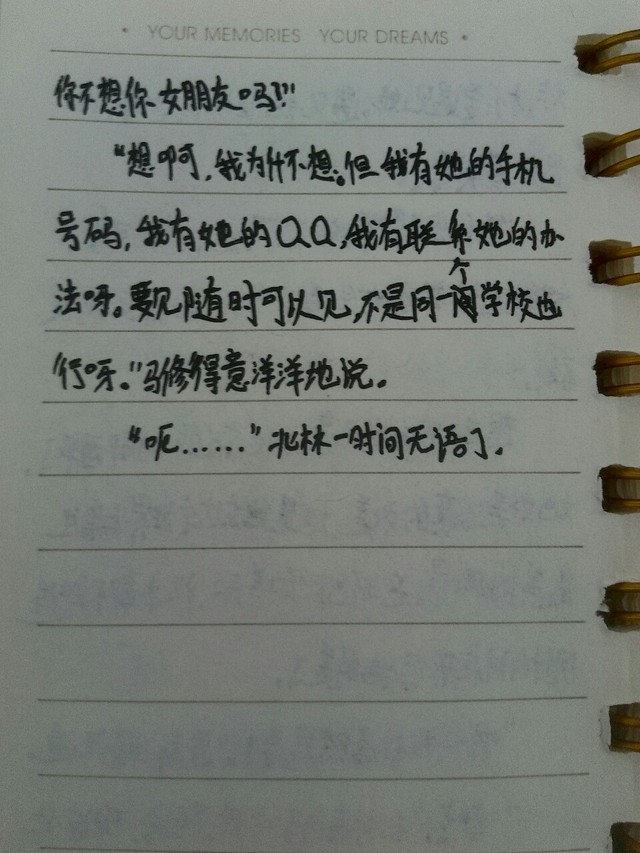 • YOUR MEMORIES YOUR DREAMS •
你不想你女朋友吗?!"
"想啊,我为什不想。但我有她的手机
号码,我有她的QQ,我有联系她的办
法呀。要见随时可以见,不是同一个学校也
行呀。"马修得意洋洋地说。
"呃……"北林一时间无语了。